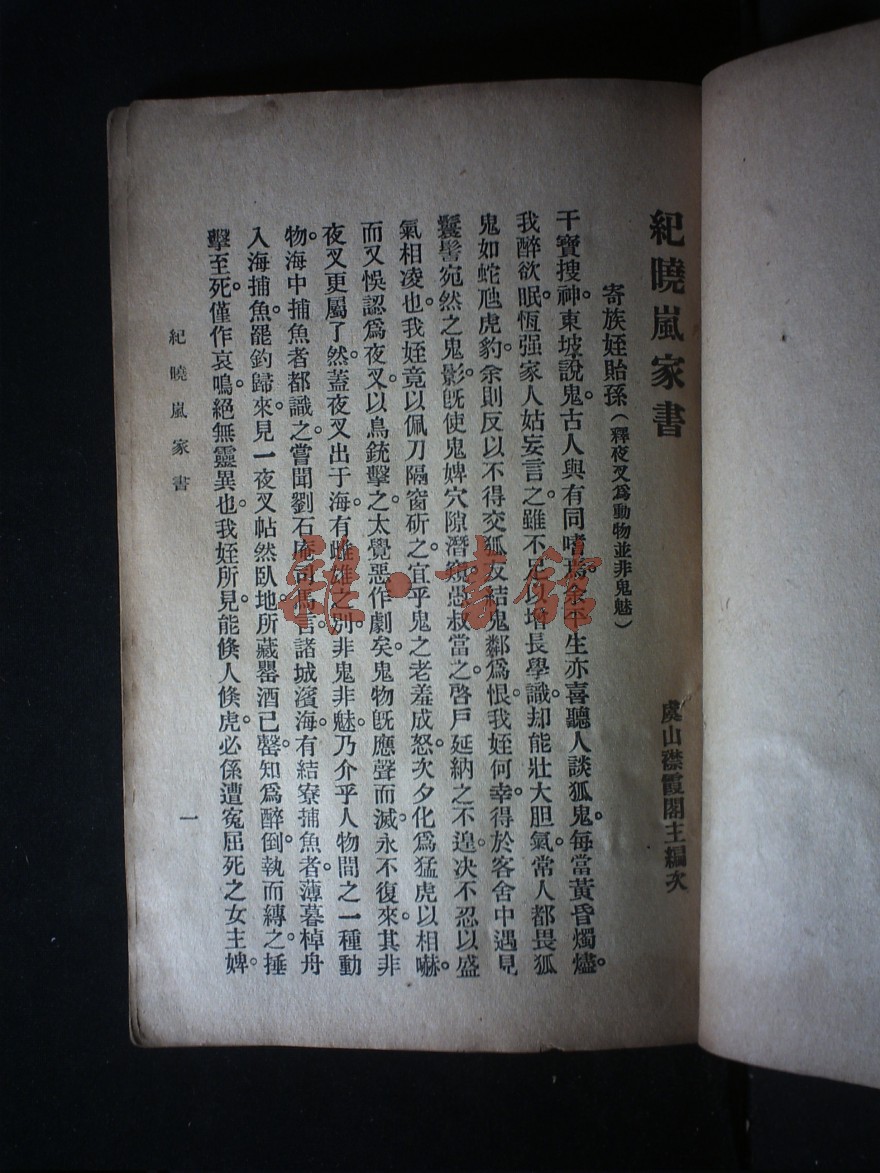 紀曉嵐家書
虞山襟霞閣主編次
寄族姪貽孫(釋夜叉爲動物並非鬼魅)
干寶搜神。東坡說鬼。古人與有同嗜焉。余平生亦喜聽人談狐鬼。每當黃昏燭燼。
我醉欲眠。恆强家人姑妄言之。雖不足以增長學識。却能壯大胆氣。常人都畏狐
鬼如蛇虺虎豹。余則反以不得交狐友結鬼鄰爲恨。我姪何幸。得於客舍中遇見
鬟髻宛然之鬼影。旣使鬼婢穴隙潛窺。愚叔當之。啓戶延納之不遑。决不忍以盛
氣相凌也。我姪竟以佩刀隔窗斫之。宜乎鬼之老羞成怒。次夕化爲猛虎以相嚇。
而又悞認爲夜叉。以鳥銃擊之。太覺惡作劇矣。鬼物旣應聲而滅。永不復來。其非
夜叉更屬了然。蓋夜叉出于海。有雌雄之別。非鬼非魅。乃介乎人物間之一種動
物。海中捕魚者都識之。嘗聞劉石庵司馬言。諸城濱海。有結寮捕魚者。薄暮棹舟
入海捕魚。罷釣歸來。見一夜叉帖然臥地。所藏罌酒已罄。知爲醉倒。執而縛之。捶
擊至死。僅作哀鳴。絕無靈異也。我姪所見。能倏人倏虎。必係遭寃屈死之女主婢。
紀曉嵐家書
一
雜·書館